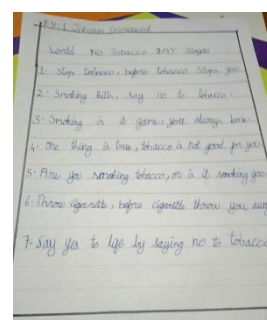 World No Tobacco DAY Slogan
1. Stop tobacco, before tobacco stops you.
2. Smoking kills, say no to tobacco.
3. Smoking is a game, you always lose.
4. One thing is true, tobacco is not good for you
5. Are you smoking tobacco, or is it smoking you
6. Throw cigarette, before cigarette throw you away
7. Say yes to life by saying no to tobacco